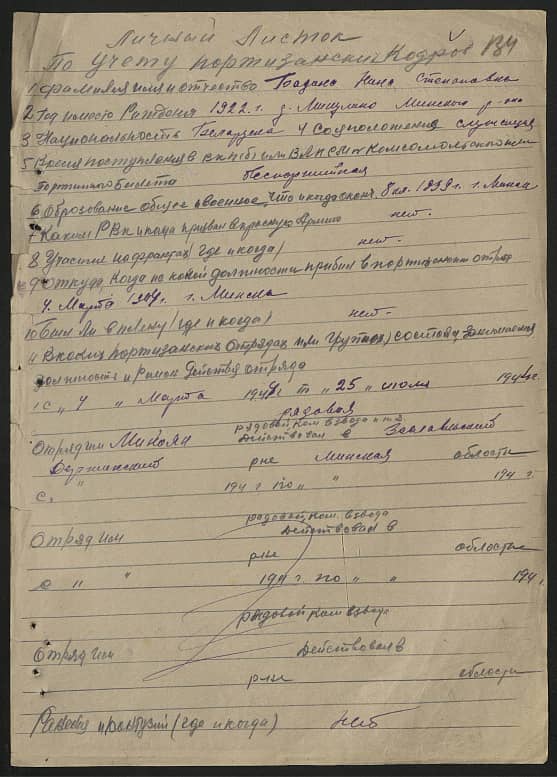 Личный Листок
По учету партизанских Кадров
1. Фамилия имя и отчество Нина Степановна
2. Год и место Рождения 1922 г. д. Минского р-на
3 Национальность Белоруска 4 Соцположение служащая
5 Время поступления в вкпб или ВЛКСМ № комсомольского или
Партийного билета беспартийная
6 Образование общее и военное, что и когда оконч. 8 кл. 1939 г. г. Минск
7 Каким РВК и когда призван в красную Армию нет.
8 Участие на фронтах (где и когда) нет.
9 Откуда, когда на какой должности прибыл в партизанский отряд
4. Марта 1944 г. г. Минска
10 Был ли в плену (где и когда) нет.
11 В каких партизанских отрядах или группах) состоял занимаемая
должность и Район Действия отряда
1 с " 4 " Марта 1944 г. по " 25 " июля 1944 г.
рядовая
рядовой, ком. взвода и т.д.
Отряд им Действовал в Заславльский
Дзержинский рне Минская области
с. " 194 г по " " 194 г.
рядовой, ком. взвода
Отряд им Действовал в
рне области
с " " 194 г. по " " 194 г.
рядовой ком взвода
Отряд им Действовал в
рне области
Ранения и контузии (где и когда) нет